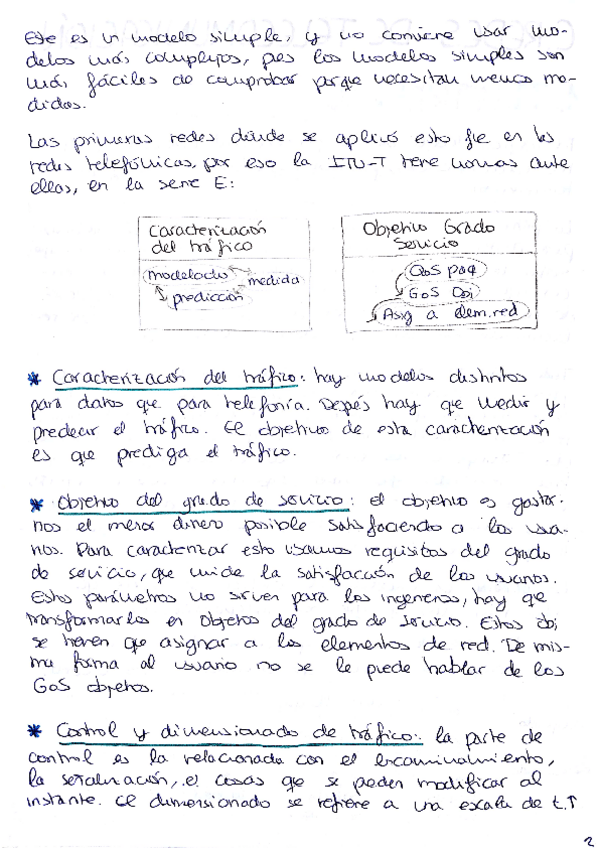 Este es un modelo simple, y no conviene usar mo-
delos más complejos, pues los modelos simples son
más fáciles de comprobar porque necesitan menos me-
didas.
Las primeras redes dónde se aplicó esto fue en las
redes telefónicas, por eso la ITU-T tiene normas ante
ellas, en la serie E:
Caracterización
del tráfico
modelado
medida
predicción
Objetivo Grado
Servicio
QoS paq
GoS Obj
Asig a elem.red
* Caracterización del tráfico: hay modelos distintos
para datos que para telefonía. Depés hay que medir y
predecir el tráfico. El objetivo de esta caracterización
es que prediga el tráfico.
* Objetivo del grado de servicio: el objetivo es gastar-
nos el menor dinero posible satisfaciendo a los usua-
rios. Para caracterizar esto usamos requisitos del grado
de servicio, que mide la satisfacción de los usuarios.
Estos parámetros no sirven para los ingenieros, hay que
transformarlos en Objetivos del grado de servicio. Estos obj
se tienen que asignar a los elementos de red. De mis-
ma forma al usuario no se le puede hablar de los
GoS objetivos.
* Control y dimensionado de tráfico: la parte de
control es la relacionada con el encaminamiento,
la señalización, cosas que se pueden modificar al
instante. El dimensionado se refiere a una escala de t.↑
2